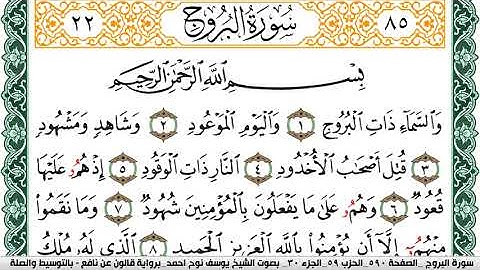 ٢٢ سُورَةُ الْبُرُوجِ ٨٥
بِسْمِ اللَّهِ الرَّحْمَٰنِ الرَّحِيمِ
وَالسَّمَآءِ ذَاتِ الْبُرُوجِ ١ وَالْيَوْمِ الْمَوْعُودِ ٢ وَشَاهِدٍ وَمَشْهُودٍ
٣ قُتِلَ أَصْحَٰبُ الْأُخْدُودِ ٤ النَّارِ ذَاتِ الْوَقُودِ ٥ إِذْ هُمُۥ عَلَيْهَا
قُعُودٌ ٦ وَهُمُۥ عَلَىٰ مَا يَفْعَلُونَ بِالْمُؤْمِنِينَ شُهُودٌ ٧ وَمَا نَقَمُوا
مِنْهُمُۥ إِلَّا أَنْ يُؤْمِنُوا بِاللَّهِ الْعَزِيزِ الْحَمِيدِ ٨ الَّذِي لَهُۥ مُلْكُ
سورة البروج_ الصفحة ٥٩٠_الحزب ٥٩_الجزء ٣٠_ بصوت الشيخ يوسف نوح احمد_ برواية قالون عن نافع - بالتوسيط والصلة